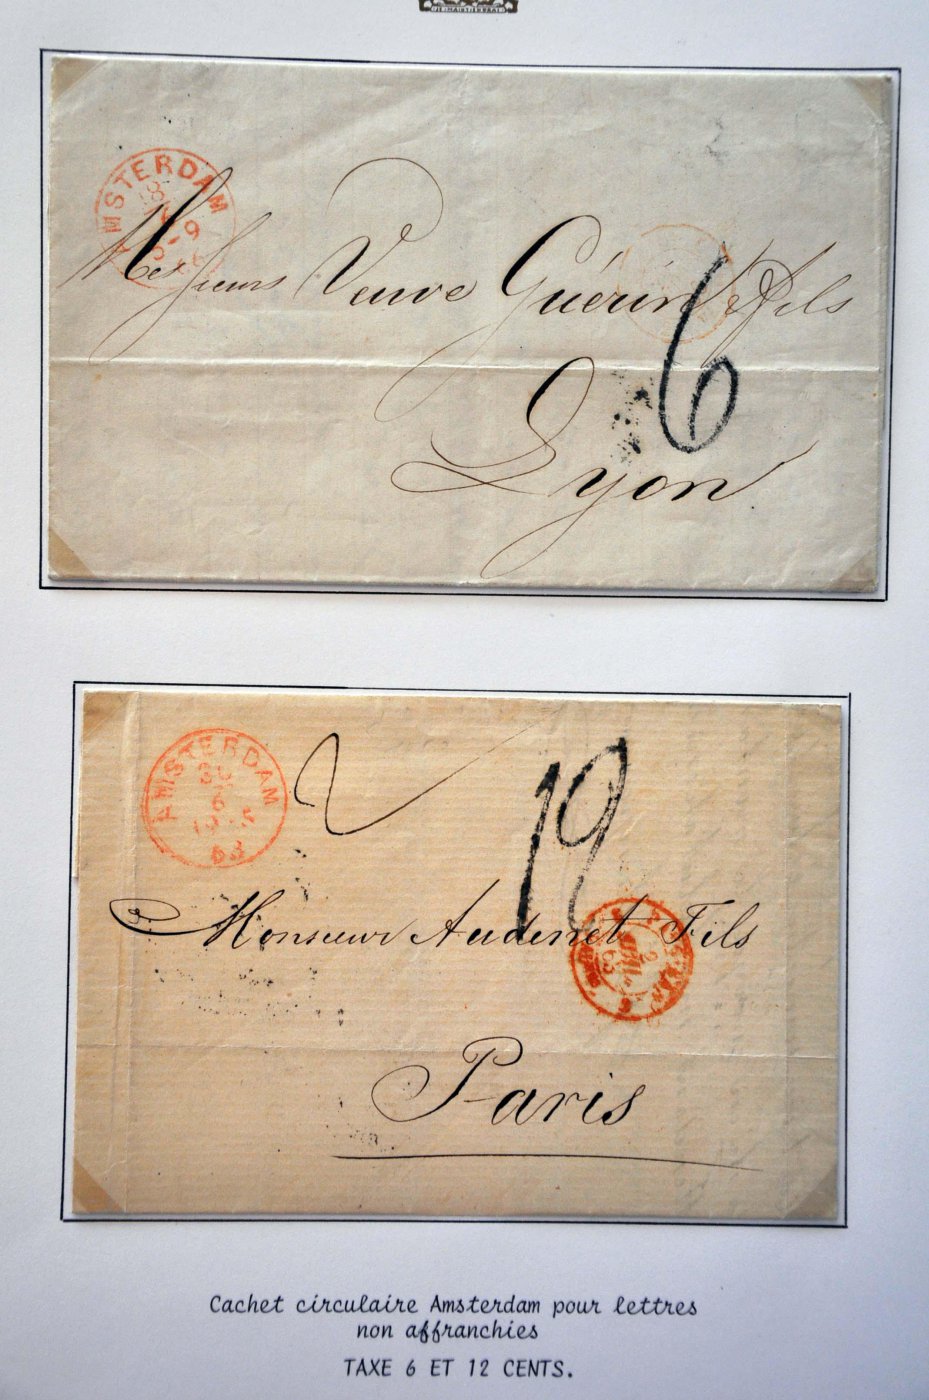 AMSTERDAM
Messieurs Veuve Guérin & fils
6
Lyon
AMSTERDAM
63
12
Monsieur Audenet Fils
2
63
Paris
Cachet circulaire Amsterdam pour lettres
non affranchies
TAXE 6 ET 12 CENTS.